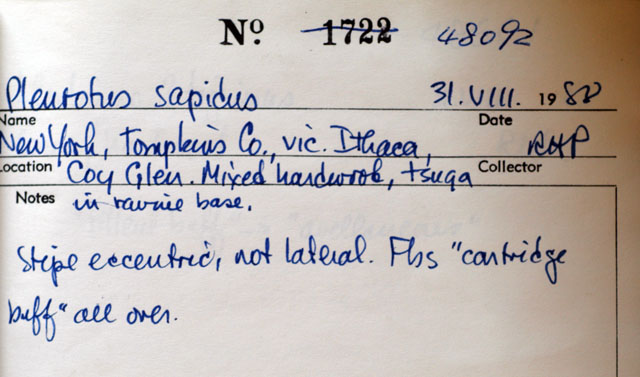 Nº 1722 48092
Pleurotus sapidus 31.VIII. 1988
Name Date
New York, Tompkins Co., vic. Ithaca, RHP
Location Coy Glen. Mixed hardwoods, Tsuga Collector
Notes in ravine base.
Stipe eccentric, not lateral. Fbs "cartridge
buff" all over.